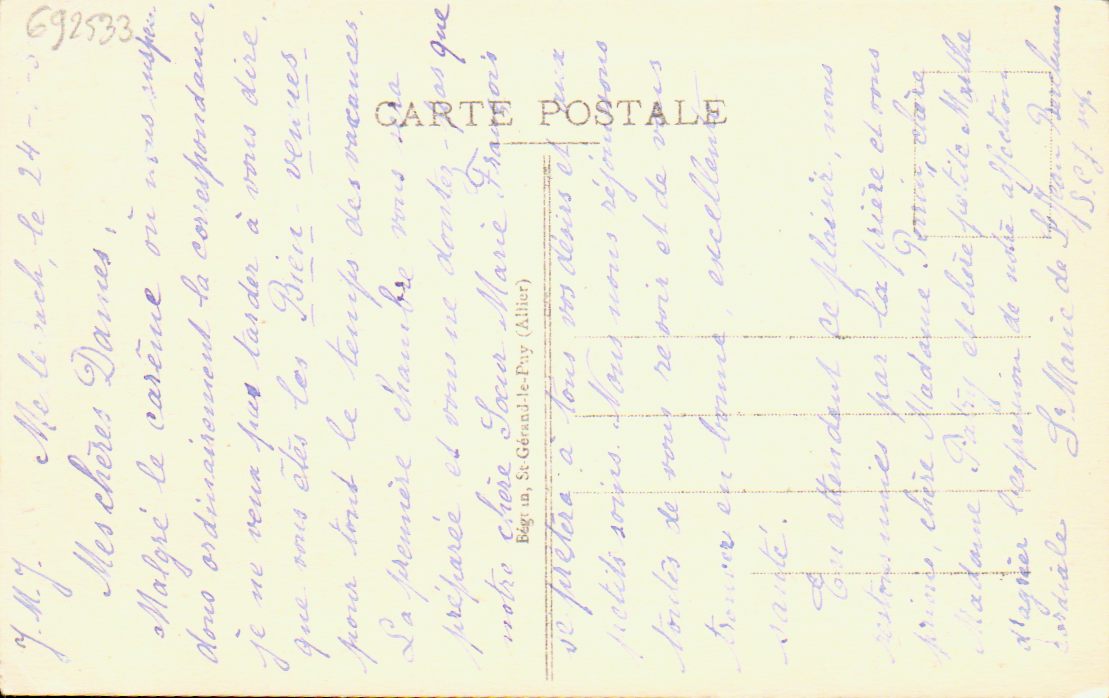 692533
CARTE POSTALE
Bégun, St-Gérand-le-Puy (Allier)
J. M. J.
le 24
Mes chères Dames,
Malgré le carême où nous suspen
dons ordinairement la correspondance,
je ne veux pas tarder à vous dire
que vous êtes les Bien-venues
pour tout le temps des vacances.
La première chambre vous
préparée et vous ne doutez-pas que
notre chère Sœur Marie François
se prêtera à tous vos désirs et aux
petits soins. Nous nous réjouissons
toutes de vous revoir et de vous
trouver en bonne, excellente
santé.
En attendant ce plaisir, nous
restons unies par la prière et vous
prions, chère Madame chère
Madame et chère petite Marthe
d'agréer l'expression de notre affection
cordiale
Sr Marie de St Jean